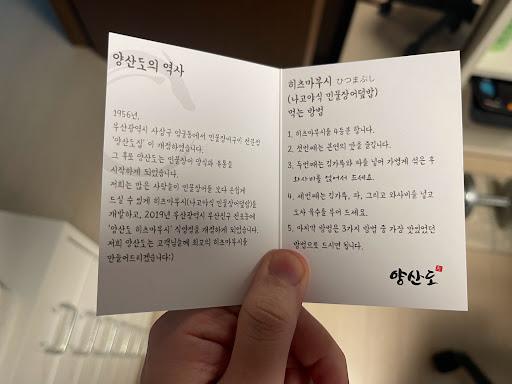 양산도의 역사
1956년,
부산광역시 사상구 엄궁동에서 민물장어구이 전문점
'양산도집' 이 개점하였습니다.
그 후로 양산도는 민물장어 양식과 유통을
시작하게 되었습니다.
저희는 많은 사람들이 민물장어를 보다 손쉽게
드실 수 있게 히츠마부시(나고야식 민물장어덮밥)를
개발하고, 2019년 부산광역시 부산진구 전포동에
'양산도 히츠마부시' 식당점을 개점하게 되었습니다.
저희 양산도는 고객님들께 최고의 히츠마부시를
만들어드리겠습니다:)
히츠마부시 ひつまぶし
(나고야식 민물장어덮밥)
먹는 방법
1. 히츠마부시를 4등분 합니다.
2. 첫번째는 본연의 맛을 즐깁니다.
3. 두번째는 김가루와 파를 넣어 가볍게 섞은 후
와사비를 얹어서 드세요.
4. 세번째는 김가루, 파, 그리고 와사비를 넣고
오차 육수를 부어 드세요.
5. 마지막 방법은 3가지 방법 중 가장 맛있었던
방법으로 드시면 됩니다.
양산도